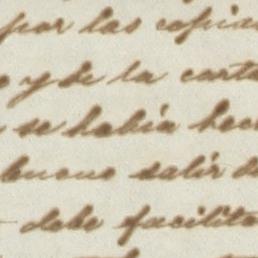 por las copias
o y de la carta
se habia hec
bueno salir de
debe facilita